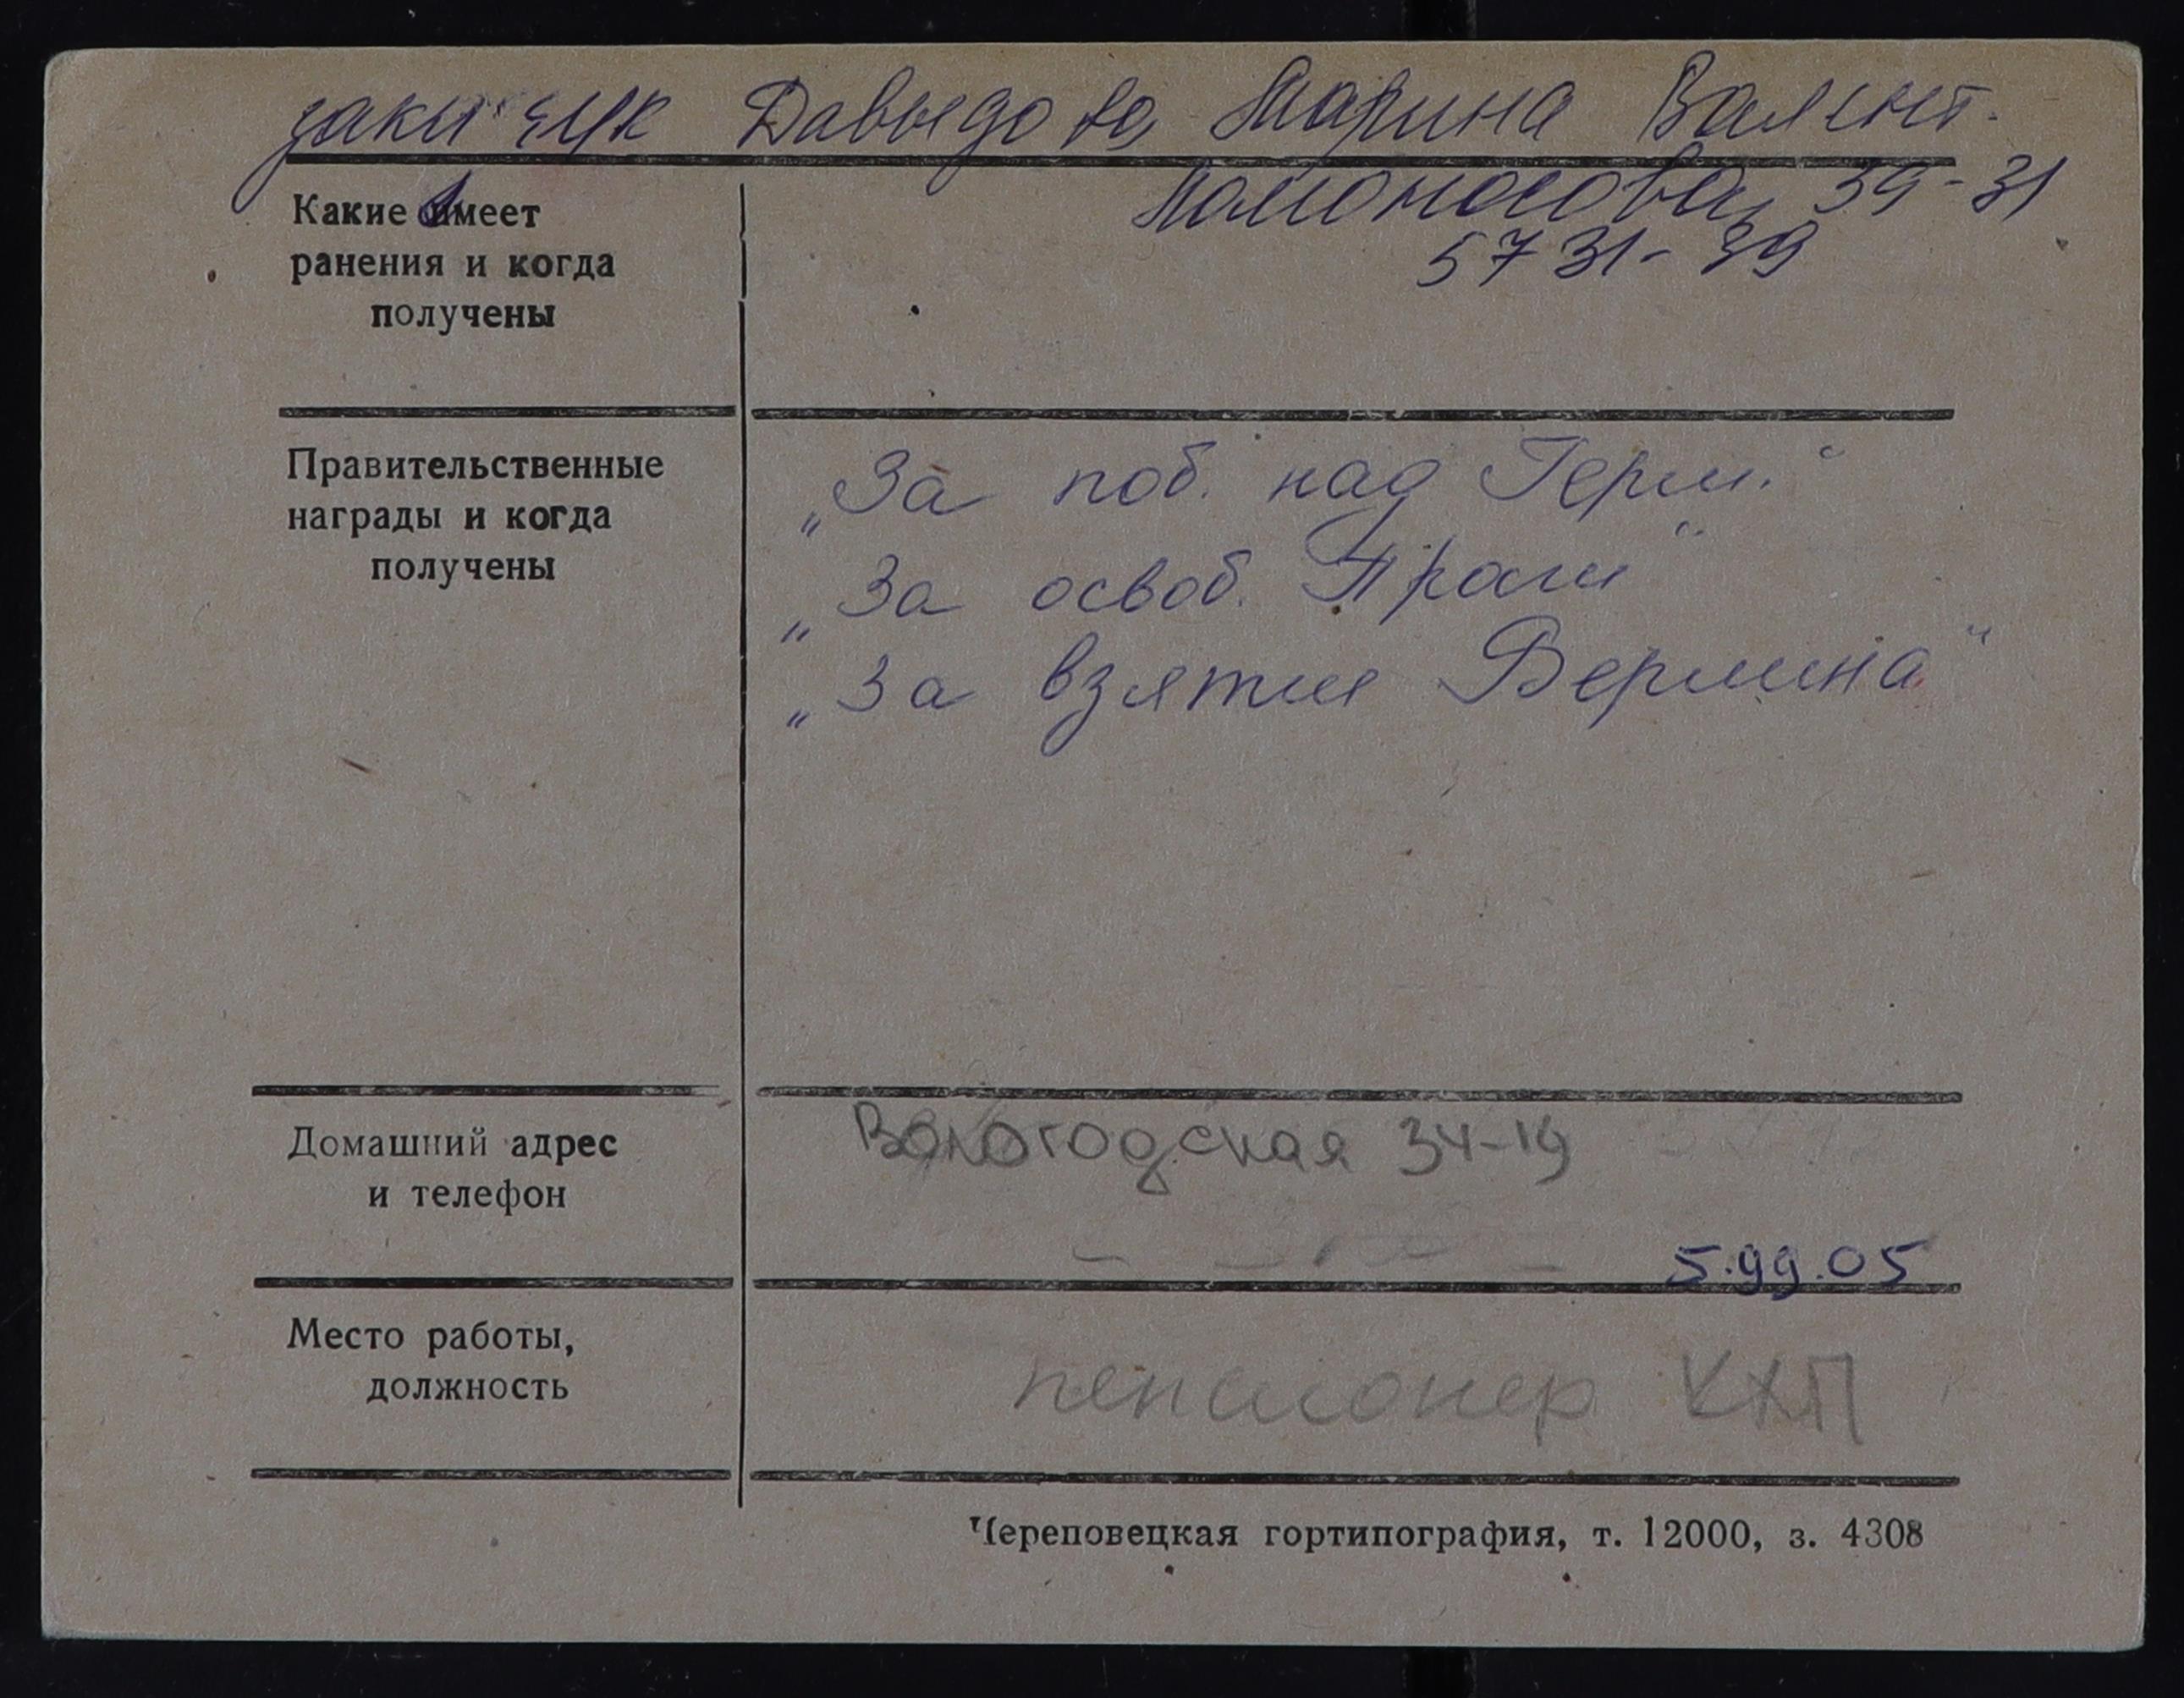 Давыдова Марина Валент.
Ломоносова, 39-31
5 7 31-39
Какие имеет
ранения и когда
получены
Правительственные
награды и когда
получены
„За поб. над Герм."
„За освоб. Праги"
„За взятие Берлина"
Домашний адрес
и телефон
Вологодская 34-19
5.99.05
Место работы,
должность
пенсионер КХП
Череповецкая гортипография, т. 12000, з. 4308